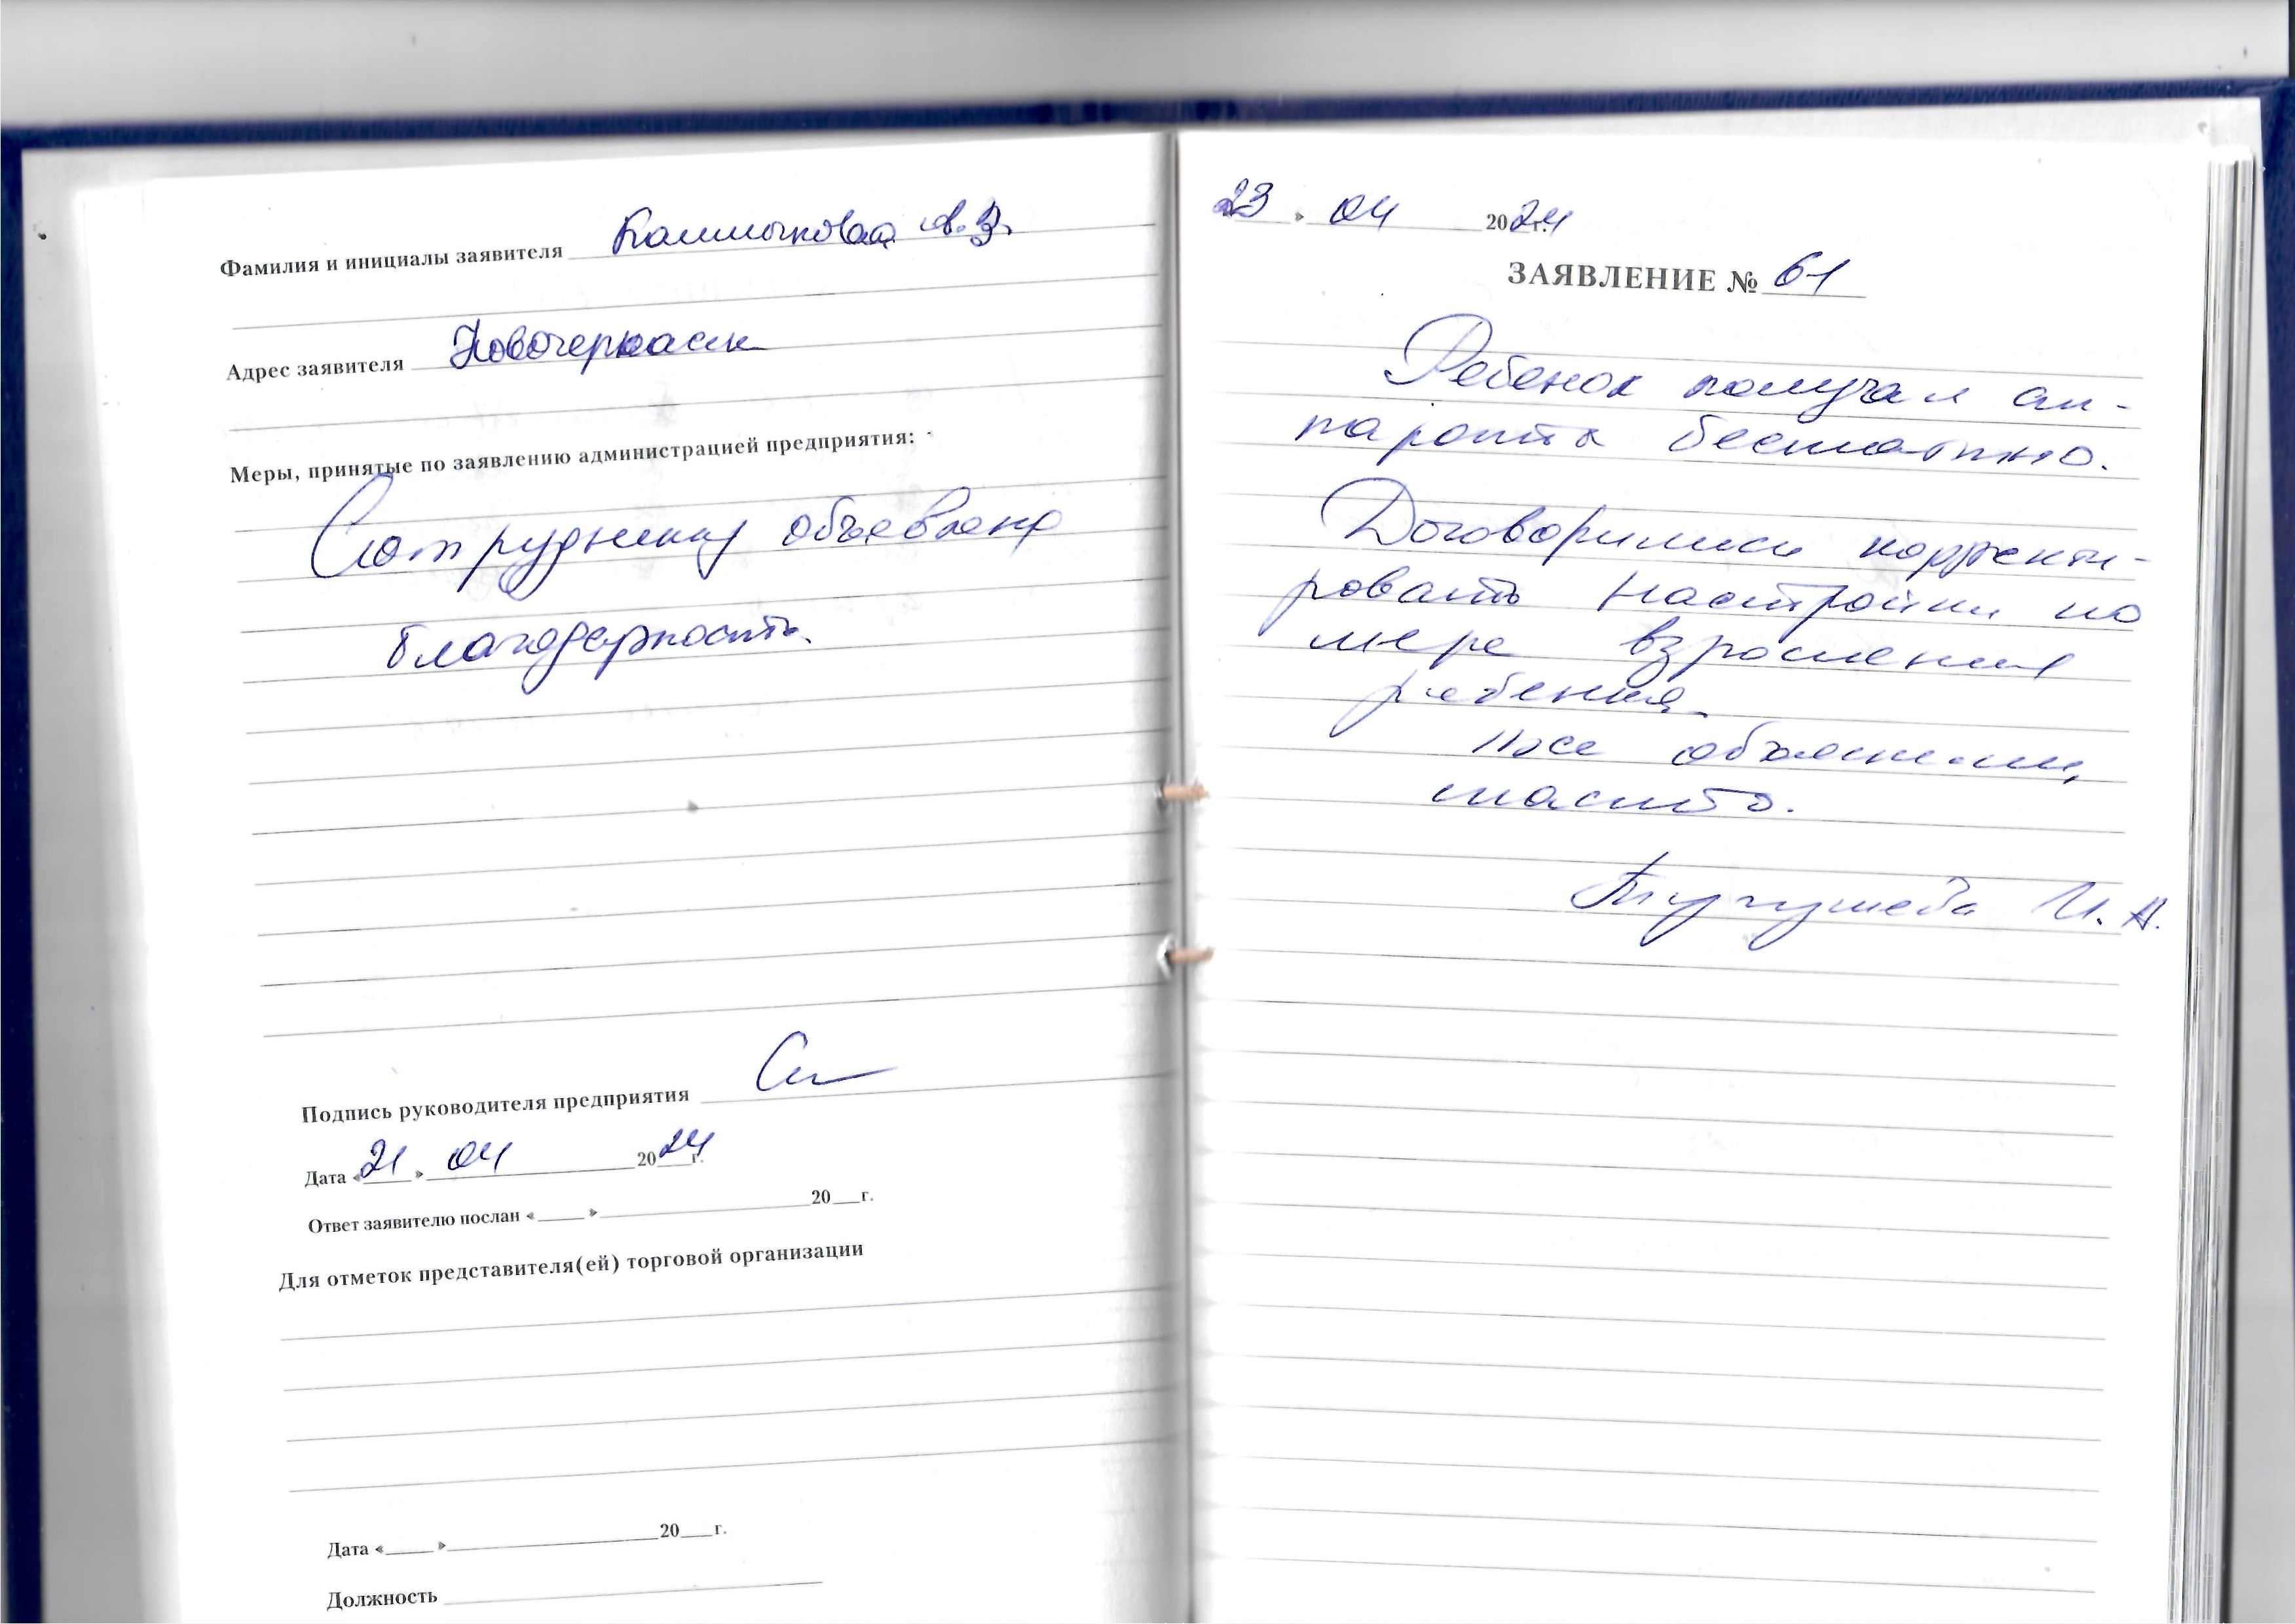 Фамилия и инициалы заявителя Калмыковаа А.В.
Адрес заявителя Новочеркасск
Меры, принятые по заявлению администрацией предприятия:
Сотруднику объявлена
благодарность.
Подпись руководителя предприятия
Дата «21» 04 2024г.
Ответ заявителю послан «____» 20__г.
Для отметок представителя(ей) торговой организации
Дата «____» 20__г.
Должность
23 » 04 2024г.
ЗАЯВЛЕНИЕ № 61
Ребенок получал ап-
параты бесплатно.
Договорились корректи-
ровать настройки по
мере взросления
ребенка.
Все объяснили,
спасибо.
Тугушева И.А.